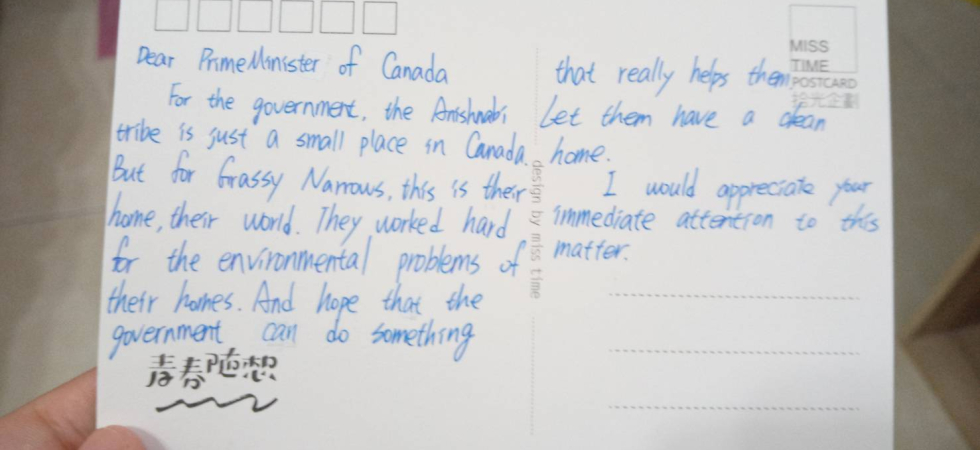 Dear Prime Minister of Canada
For the government, the Anishnabi
tribe is just a small place in Canada.
But for Grassy Narrows, this is their
home, their world. They worked hard
for the environmental problems of
their homes. And hope that the
government can do something
青春随想
that really helps them
Let them have a clean
home.
I would appreciate your
immediate attention to this
matter.
MISS
TIME
POSTCARD
拾光企劃
design by miss time